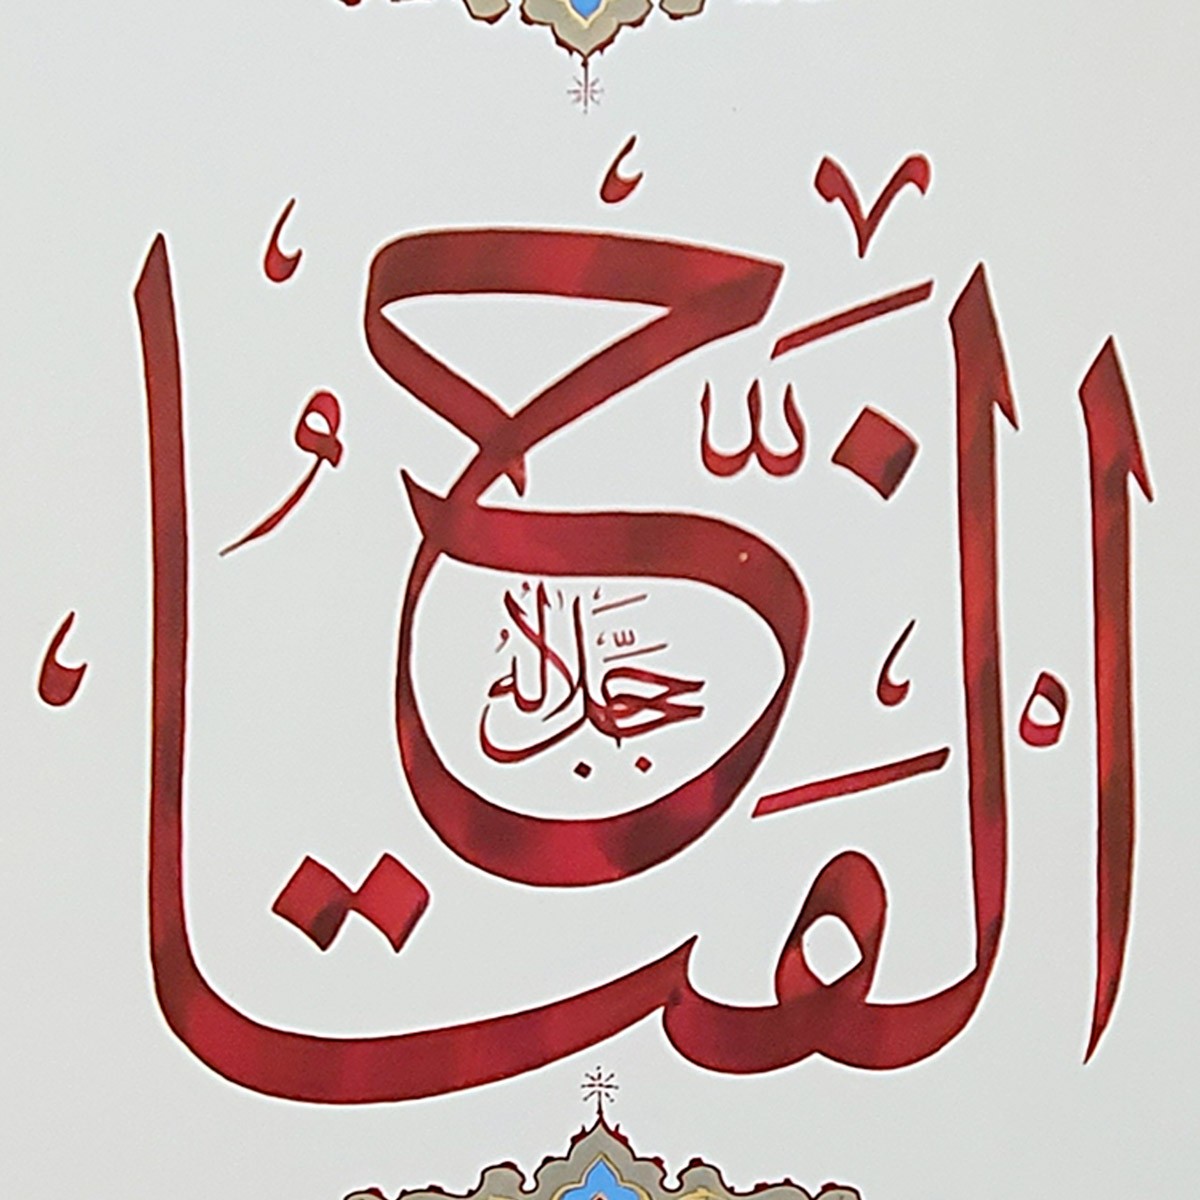 الفَتَّاحُ
جَلَّ جَلَالُهُ